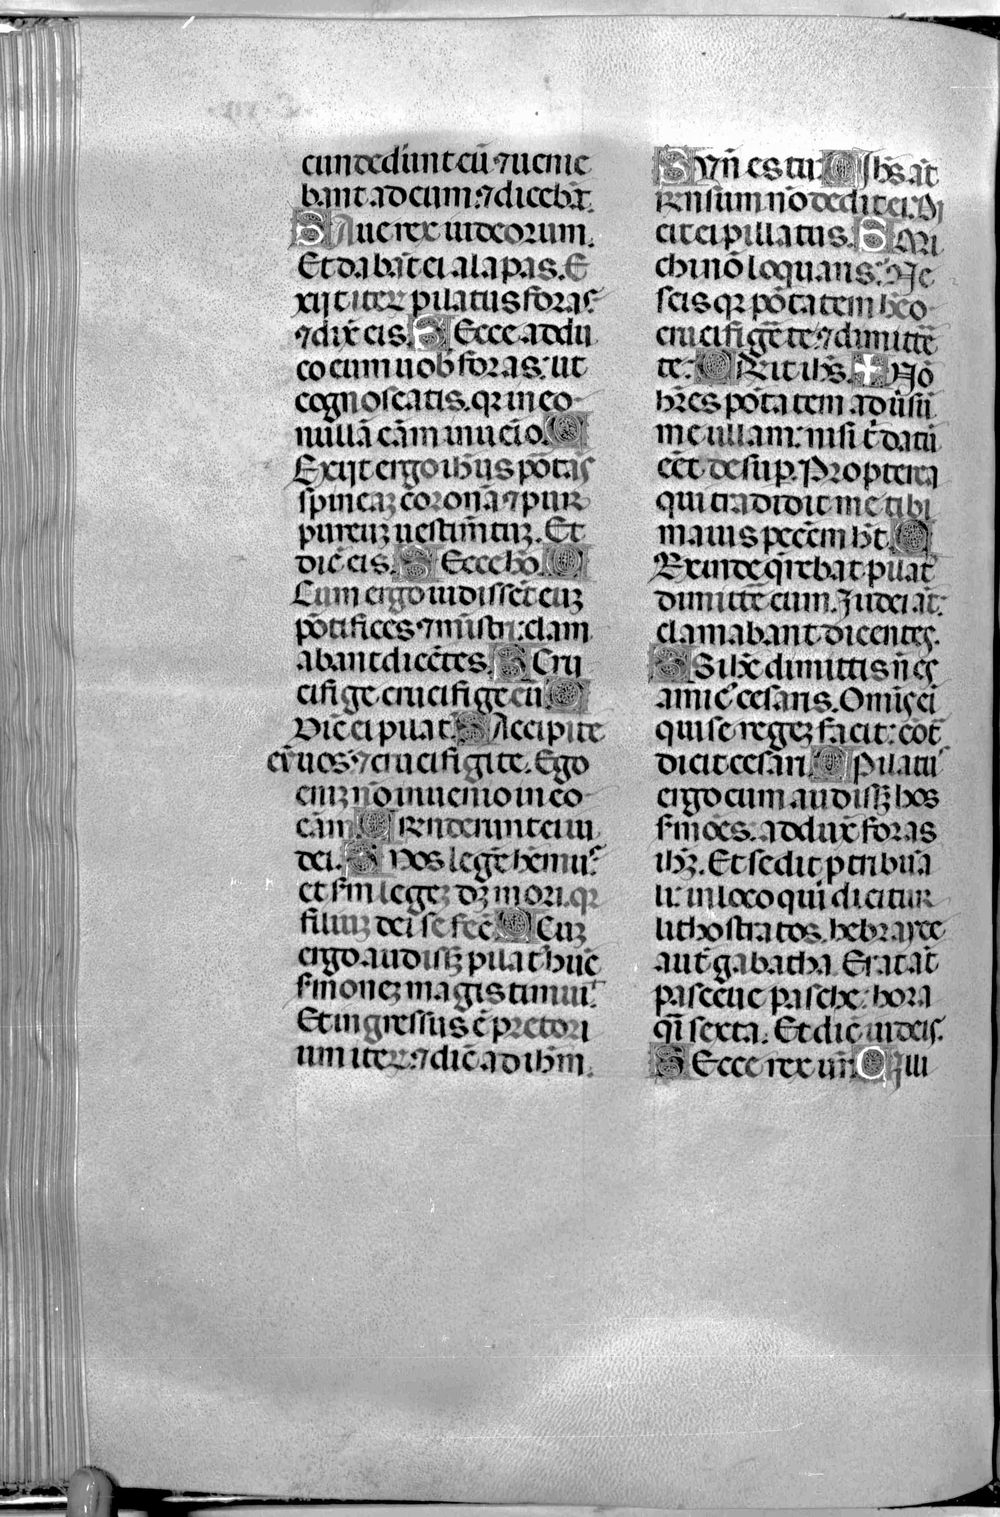 cundediunt eū ⁊ uenie
bant ad eum: ⁊ dicebāt.
S Aue rex iudeorum.
Et dabāt ei alapas. E
xijt iterꝝ pilatus foras
⁊ dix̄ eis. S Ecce addu
co eum uob̄ foras: ut
cognoscatis. qꝛ in eo
nullā cām inuenio. C
Exijt ergo ih̄us pōtās
spineaʒ coronā ⁊ pur
pureuʒ uestim̄tuʒ. Et
dic̄ eis. S Ecce hō. C
Cum ergo uidissēt euʒ
pōtifices ⁊ mīstri: clam
abant dicētes. S Cru
cifige crucifige eū C
Dic̄ ei pilat̄. S Accipite
eū uos: ⁊ crucifigite. Ego
enīʒ nō inuenio in eo
cām. C Rn̄derunt ei iu
dei. S Nos legē hēmus
et s̄m legeʒ dʒ mori. qꝛ
filiuʒ dei se fec̄. C Cuʒ
ergo audissʒ pilat̄ hūc
s̄moneʒ magis timuit
Et ingressus ē pretori
um iterꝝ: ⁊ dic̄ ad ih̄m.
S Vn̄ es tu. C Ih̄s āt
rn̄sum nō dedit ei. Di
cit ei pillatus. S Mi
chi nō loquaris. Ne
scis qꝛ pōtatem hēo
crucifigē te: ⁊ dimittē
te. C Rn̄it ih̄s. + Nō
hr̄es pōtatem aduersū
me ullam: nisi t̄ datū
eēt desup. Propterea
qui tradidit me tibi
maius pecēm h̄t. C
Exinde q̄rebat pilat̄
dimittē eum. Iudei āt
clamabant dicentes.
S Si hūc dimittis n̄ es
amic̄ cesaris. Omīs ei
qui se regeʒ facit: cōt
dicit cesari. C Pilatus
ergo cum audissʒ hos
s̄mōes. addux̄ foras
ih̄ʒ. Et sedit ꝑ tribūa
li: in loco qui dicitur
lithostratos. hebrayce
aut̄ gabatha. Erat āt
pasceue pasche: hora
q̄i sexta. Et dic̄ iudeis.
S Ecce rex ur̄. C Illi